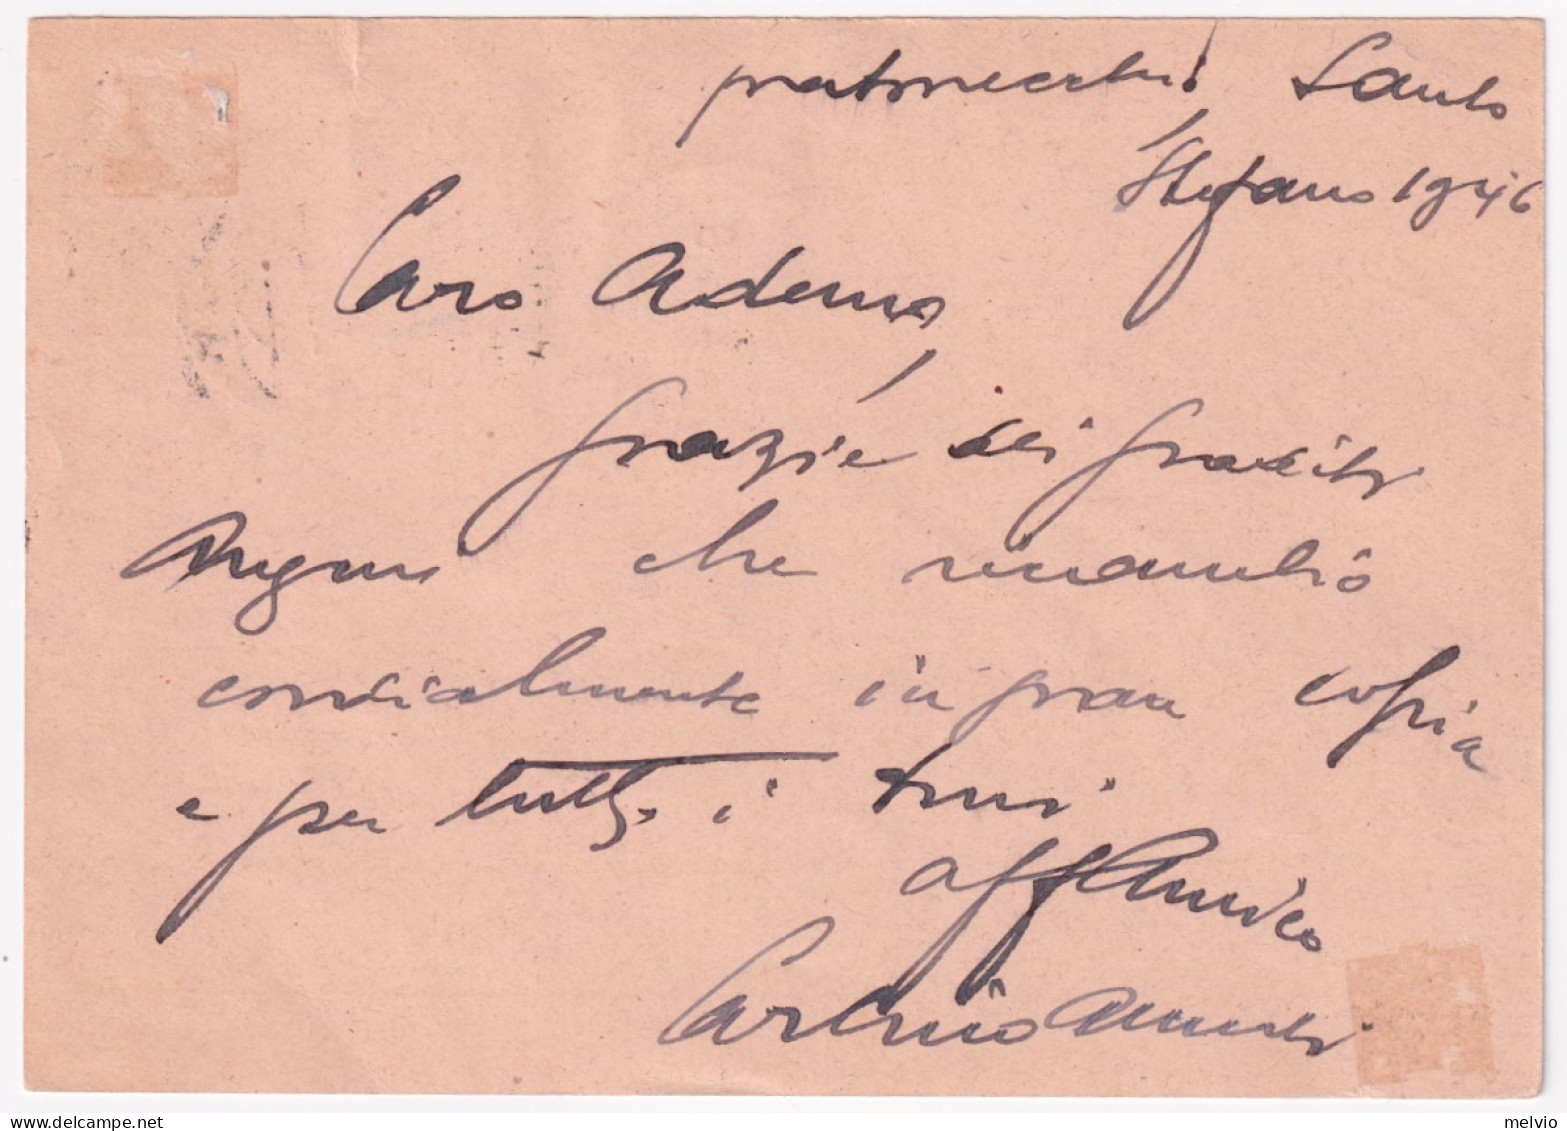 Santo
Stefano 1946
Caro Ademo,
grazie dei graditi
Auguri che ricambio
cordialmente in gran copia
e per tutti i tuoi
aff Amico
Carlino
delcampe.net
melvio